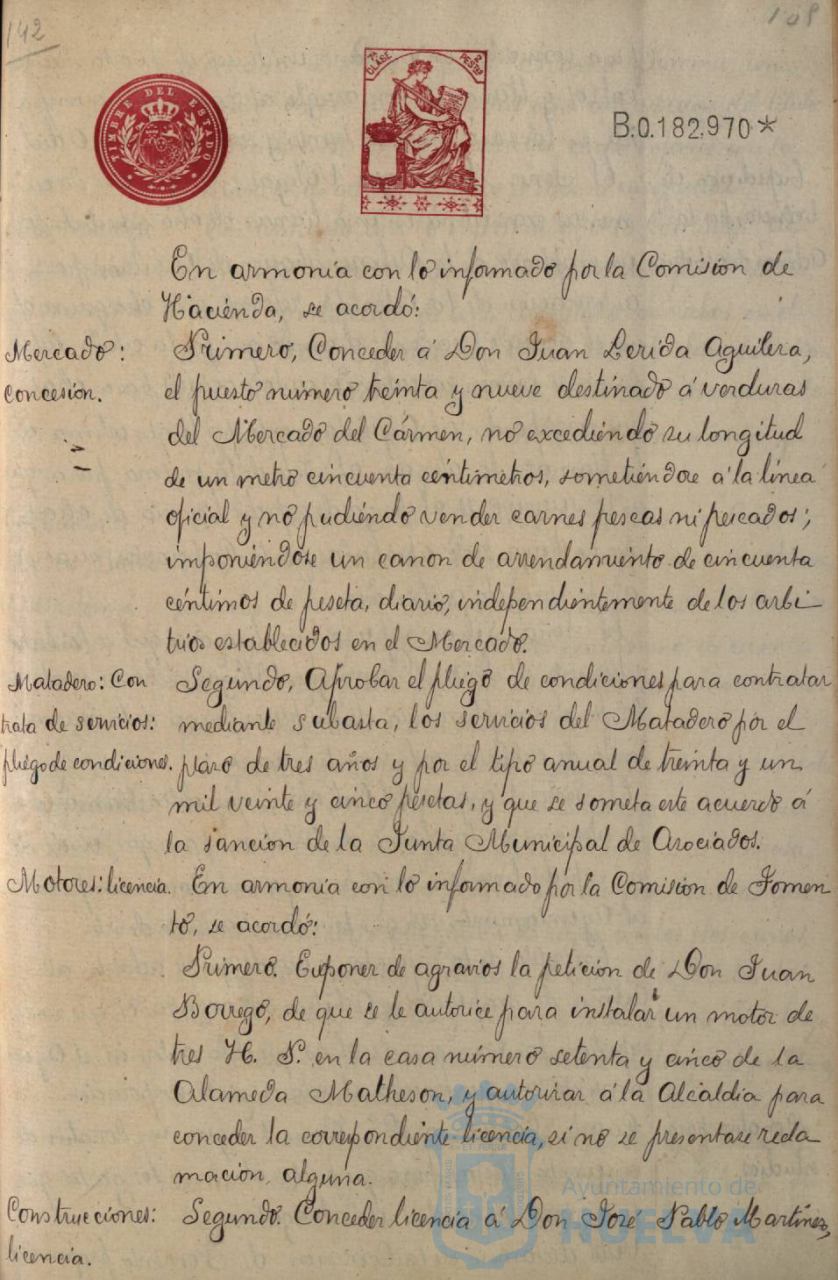 142
109
TIMBRE DEL ESTADO
7ª CLASE 2 PESTAS
B.0.182.970*
En armonía con lo informado por la Comisión de
Hacienda, se acordó:
Mercado:
concesión.
Primero, Conceder á Don Juan Lerida Aguilera,
el puesto número treinta y nueve destinado á verduras
del Mercado del Cármen, no excediendo su longitud
de un metro cincuenta céntimetros, sometiéndose á la línea
oficial y no pudiéndo vender carnes frescas ni pescados;
imponiéndose un canon de arrendamiento de cincuenta
céntimos de peseta, diario, independientemente de los arbi
trios establecidos en el Mercado.
Matadero: Con
trata de servicios:
pliego de condiciones.
Segundo, Aprobar el pliego de condiciones para contratar
mediante subasta, los servicios del Matadero por el
plazo de tres años y por el tipo anual de treinta y un
mil veinte y cinco pesetas, y que se someta este acuerdo á
la sancion de la Junta Municipal de Asociados.
Motores: licencia.
En armonía con lo informado por la Comisión de Fomen
to, se acordó:
Primero. Exponer de agravios la petición de Don Juan
Borrego, de que se le autorice para instalar un motor de
tres H. P. en la casa número setenta y cinco de la
Alameda Matheson, y autorizar á la Alcaldia para
conceder la correpondiente licencia, si no se presentase recla
macion alguna.
Construcciones:
licencia.
Segundo. Conceder licencia á Don José Pablo Martínez,
Ayuntamiento de
HUELVA